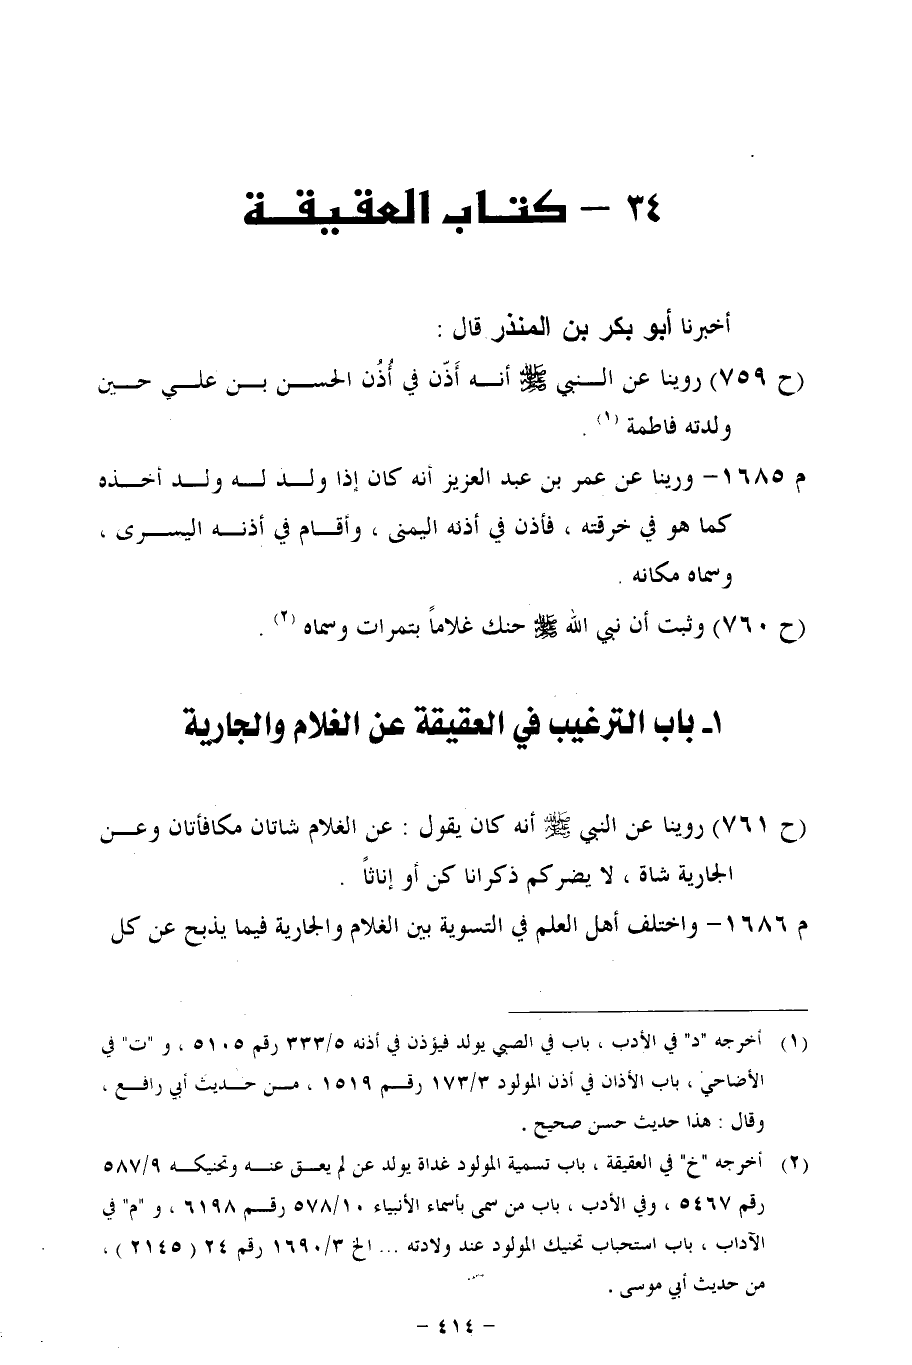 ٣٤ - كتاب العقيقة
أخبرنا أبو بكر بن المنذر قال :
(ح ٧٥٩) روينا عن النبي ﷺ أنه أَذّن في أُذُن الحسن بن علي حين
ولدته فاطمة (١) .
م ١٦٨٥- ورينا عن عمر بن عبد العزيز أنه كان إذا ولد له ولد أخذه
كما هو في خرقته ، فأذن في أذنه اليمنى ، وأقام في أذنه اليسرى ،
وسماه مكانه .
(ح ٧٦٠) وثبت أن نبي الله ﷺ حنك غلاماً بتمرات وسماه (٢) .
١ـ باب الترغيب في العقيقة عن الغلام والجارية
(ح ٧٦١) روينا عن النبي ﷺ أنه كان يقول : عن الغلام شاتان مكافأتان وعن
الجارية شاة ، لا يضركم ذكرانا كن أو إناثاً .
م ١٦٨٦- واختلف أهل العلم في التسوية بين الغلام والجارية فيما يذبح عن كل
(١) أخرجه "د" في الأدب ، باب في الصبي يولد فيؤذن في أذنه ٣٣٣/٥ رقم ٥١٠٥ ، و "ت" في
الأضاحي ، باب الأذان في أذن المولود ١٧٣/٣ رقم ١٥١٩ ، من حديث أبي رافع ،
وقال : هذا حديث حسن صحيح .
(٢) أخرجه "خ" في العقيقة ، باب تسمية المولود غداة يولد عن لم يعق عنه وتحنيكه ٥٨٧/٩
رقم ٥٤٦٧ ، وفي الأدب ، باب من سمى بأسماء الأنبياء ٥٧٨/١٠ رقم ٦١٩٨ ، و "م" في
الآداب ، باب استحباب تحنيك المولود عند ولادته ... الخ ١٦٩٠/٣ رقم ٢٤ ( ٢١٤٥ ) ،
من حديث أبي موسى .
- ٤١٤ -